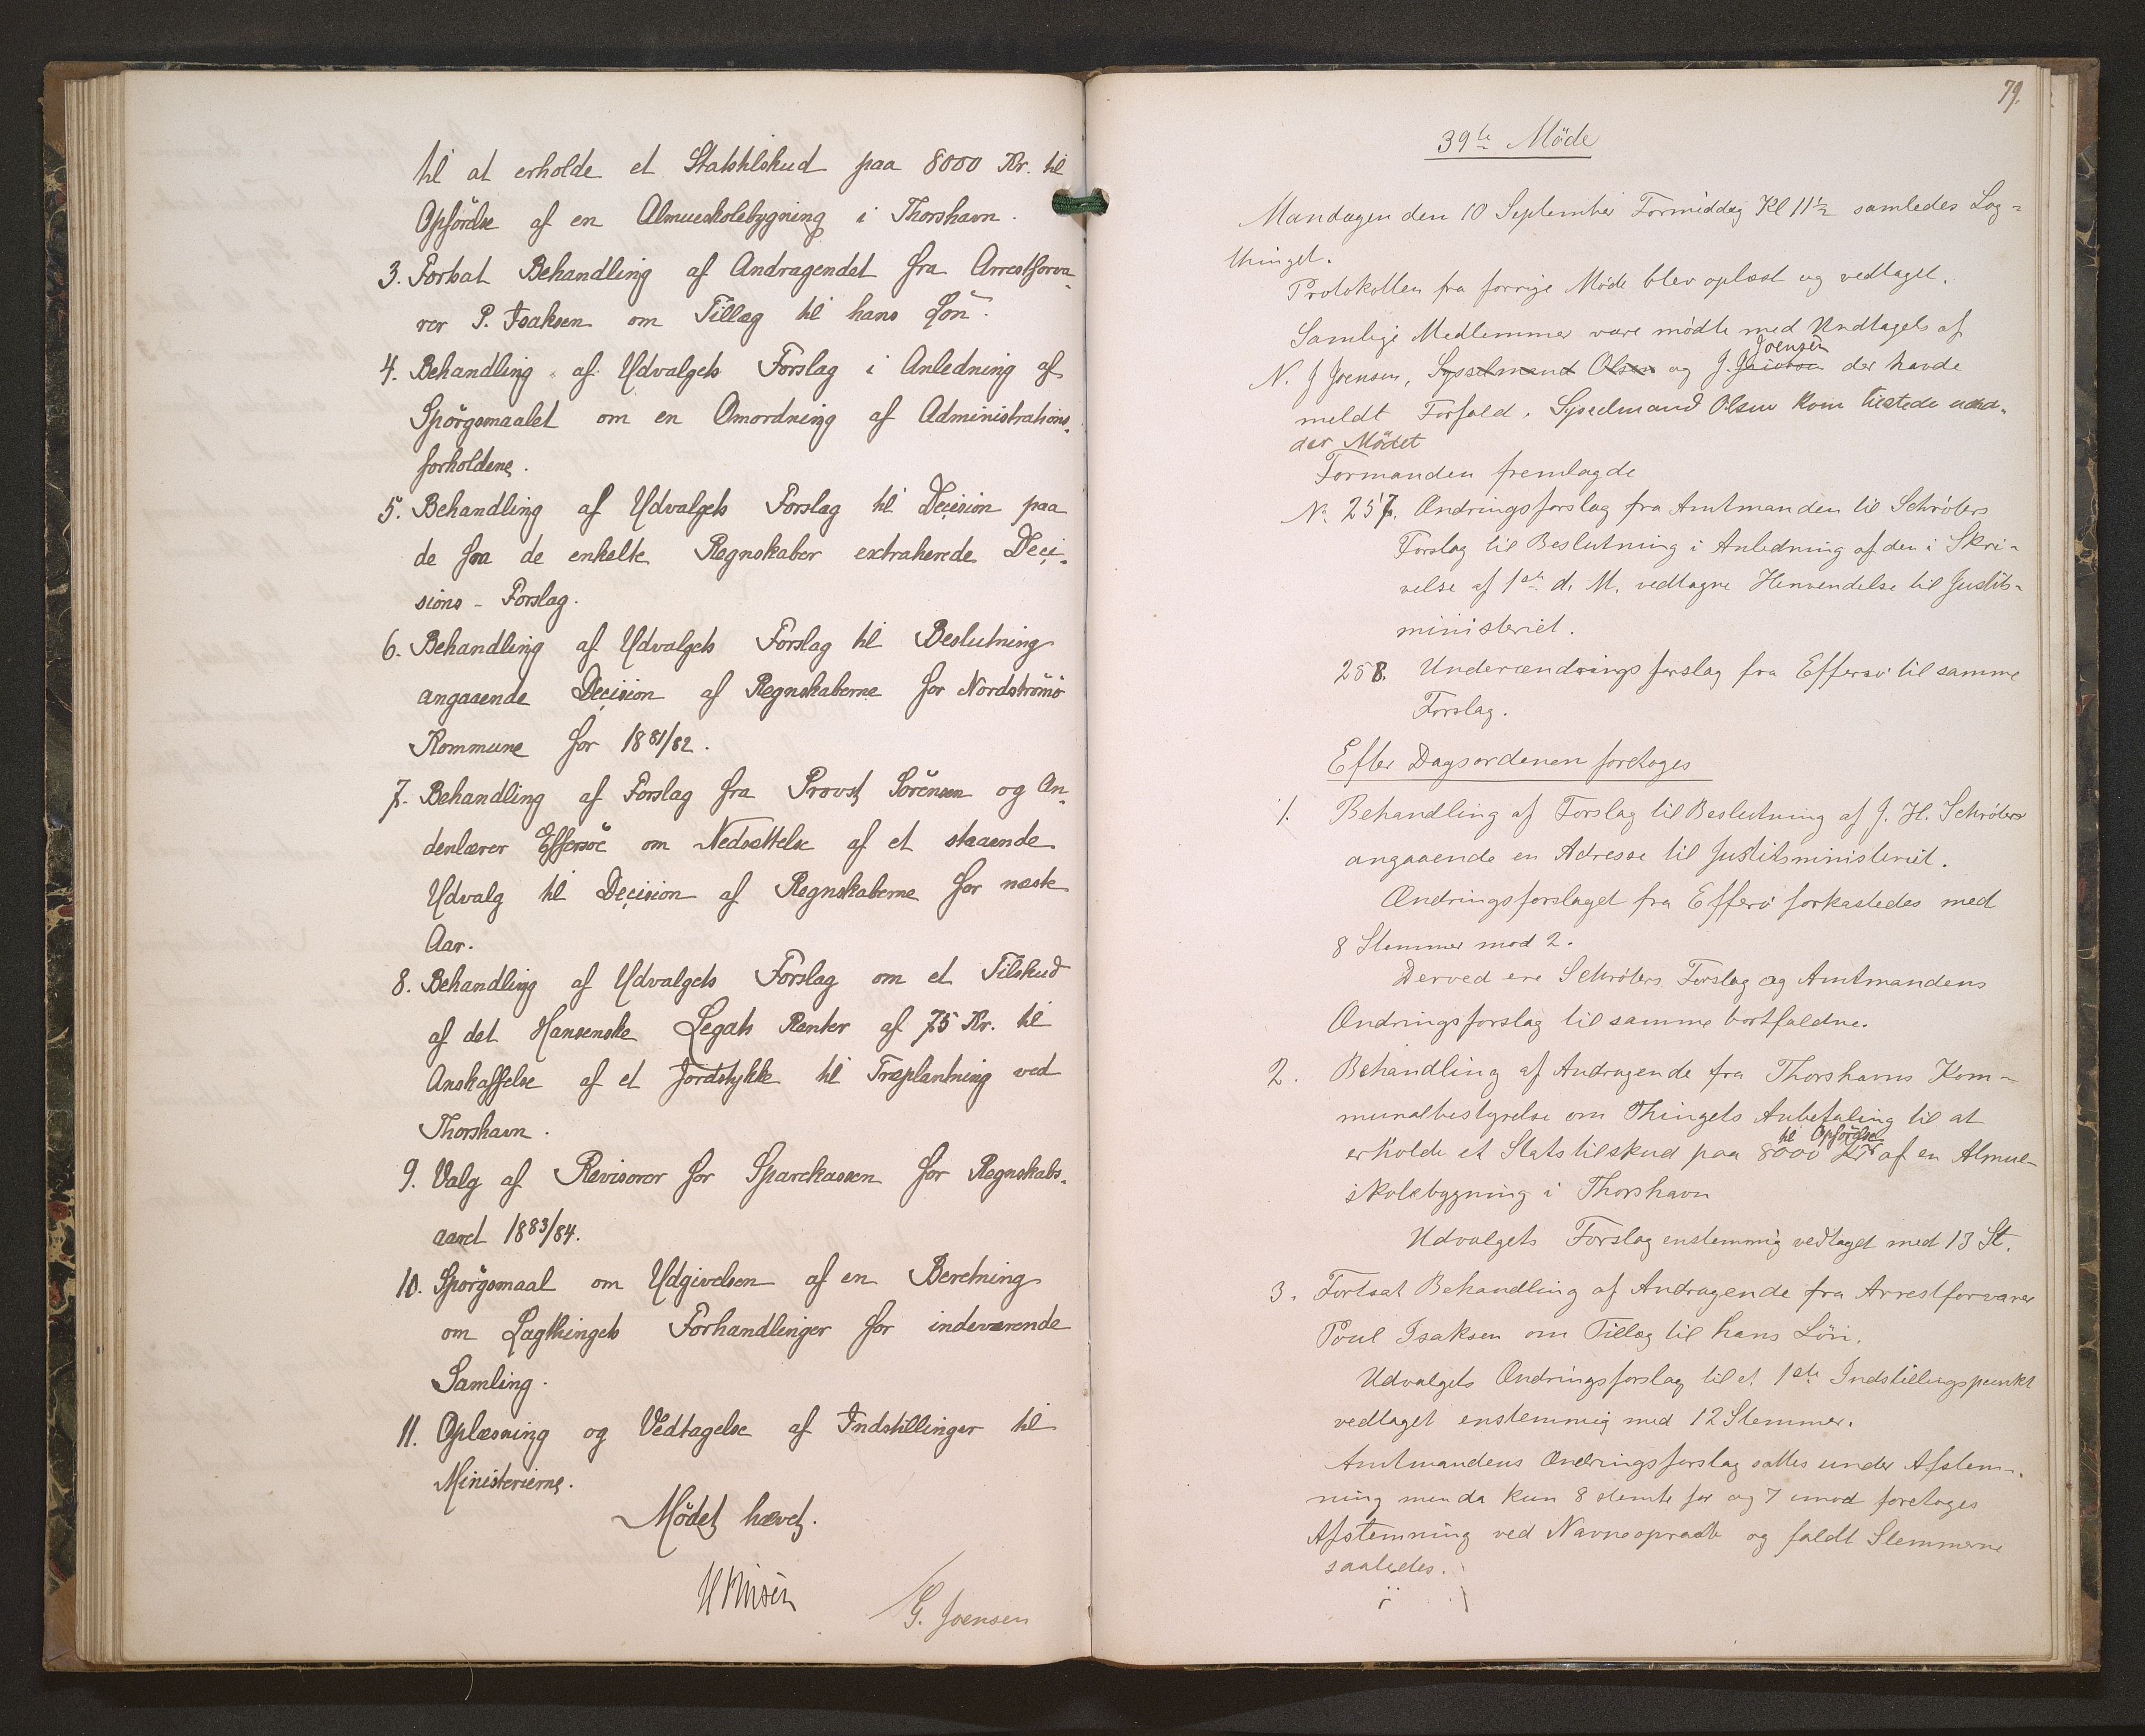 til at erholde et Statstilskud paa 8000 Kr. til
Opförelse af en Almueskolebygning i Thorshavn.
3. Fortsat Behandling af Andragendet fra Arrestforva-
rer P. Isaksen om Tillæg til hans Lön.
4. Behandling af Udvalgets Forslag i Anledning af
Spörgsmaalet om en Omordning af Administrations-
forholdene.
5. Behandling af Udvalgets Forslag til Decision paa
de fra de enkelte Regnskaber extraherede Deci-
sions-Forslag.
6. Behandling af Udvalgets Forslag til Beslutning
angaaende Decision af Regnskaberne for Nordströmö
Kommune for 1881/82.
7. Behandling af Forslag fra Provst Sörensen og An-
denlærer Effersöe om Nedsættelse af et staaende
Udvalg til Decision af Regnskaberne for næste
Aar.
8. Behandling af Udvalgets Forslag om et Tilskud
af det Hansenske Legats Renter af 75 Kr. til
Anskaffelse af et Jordstykke til Træplantning ved
Thorshavn.
9. Valg af Revisorer for Sparekassen for Regnskabs-
aaret 1883/84.
10. Spörgsmaal om Udgivelsen af en Beretning
om Lagthingets Forhandlinger for indeværende
Samling.
11. Oplæsning og Vedtagelse af Indstillinger til
Ministerierne.
Mödet hævet.
G. Joensen
79.
39te Möde
Mandagen den 10 September Formiddag Kl 11½ samledes Lag-
thinget.
Protokollen fra forrige Möde blev oplæst og vedtaget.
Samtlige Medlemmer vare mödte med Undtagels af
Joensen
N. J Joensen, Sysselmand Olsen og J. Jacobsen der havde
meldt Forfald. Sysselmand Olsen kom tilstede un-
der Mödet
Formanden fremlagde
No. 257. Ændringsforslag fra Amtmanden til Schröters
Forslag til Beslutning i Anledning af den i Skri-
velse af 1ste d. M. vedtagne Henvendelse til Justits-
ministeriet.
258. Underændringsforslag fra Effersö til samme
Forslag.
Efter Dagsordenen foretoges
1. Behandling af Forslag til Beslutning af J. H. Schröter
angaaende en Adresse til Justitsministeriet.
Ændringsforslaget fra Effersö forkastedes med
8 Stemmer mod 2.
Derved ere Schröters Forslag og Amtmandens
Ændringsforslag til samme bortfaldne.
2. Behandling af Andragende fra Thorshavns Kom-
munalbestyrelse om Thingets Anbefaling til at
til Opförelse
erholde et Statstilskud paa 8000 Kr af en Almue-
skolebygning i Thorshavn
Udvalgets Forslag enstemmig vedtaget med 13 St.
3. Fortsat Behandling af Andragende fra Arrestforvarer
Poul Isaksen om Tillæg til hans Lön.
Udvalgets Ændringsforslag til et 1ste Indstillingspunkt
vedtaget enstemmig med 12 Stemmer.
Amtmandens Ændringsforslag sattes under Afstem-
ning men da kun 8 stemte for og 7 imod foretoges
Afstemning ved Navneopraab og faldt Stemmerne
saaledes.